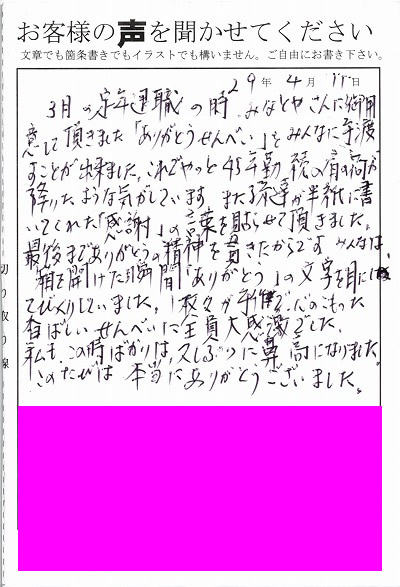 お客様の声を聞かせてください
文章でも箇条書きでもイラストでも構いません。ご自由にお書き下さい。
29年 4月 日
3月の定年退職の時、みなとやさんに御用
意して頂きました「ありがとうせんべい」をみんなに手渡
すことが出来ました。これでやっと45年勤続の肩の荷が
降りたような気がしています。また 半紙に書
いてくれた「感謝」の言葉を貼らせて頂きました。
最後まで「ありがとう」の精神を貫きたからです。みんなは、
箱を開けた瞬間「ありがとう」の文字を目にし
てびっくりしていました。一枚々々手作で、心のこもった
香ばしいせんべいに全員大感激でした。
私も、この時ばかりは、久しぶりに鼻高になりました。
このたびは本当にありがとうございました。
切り取り線